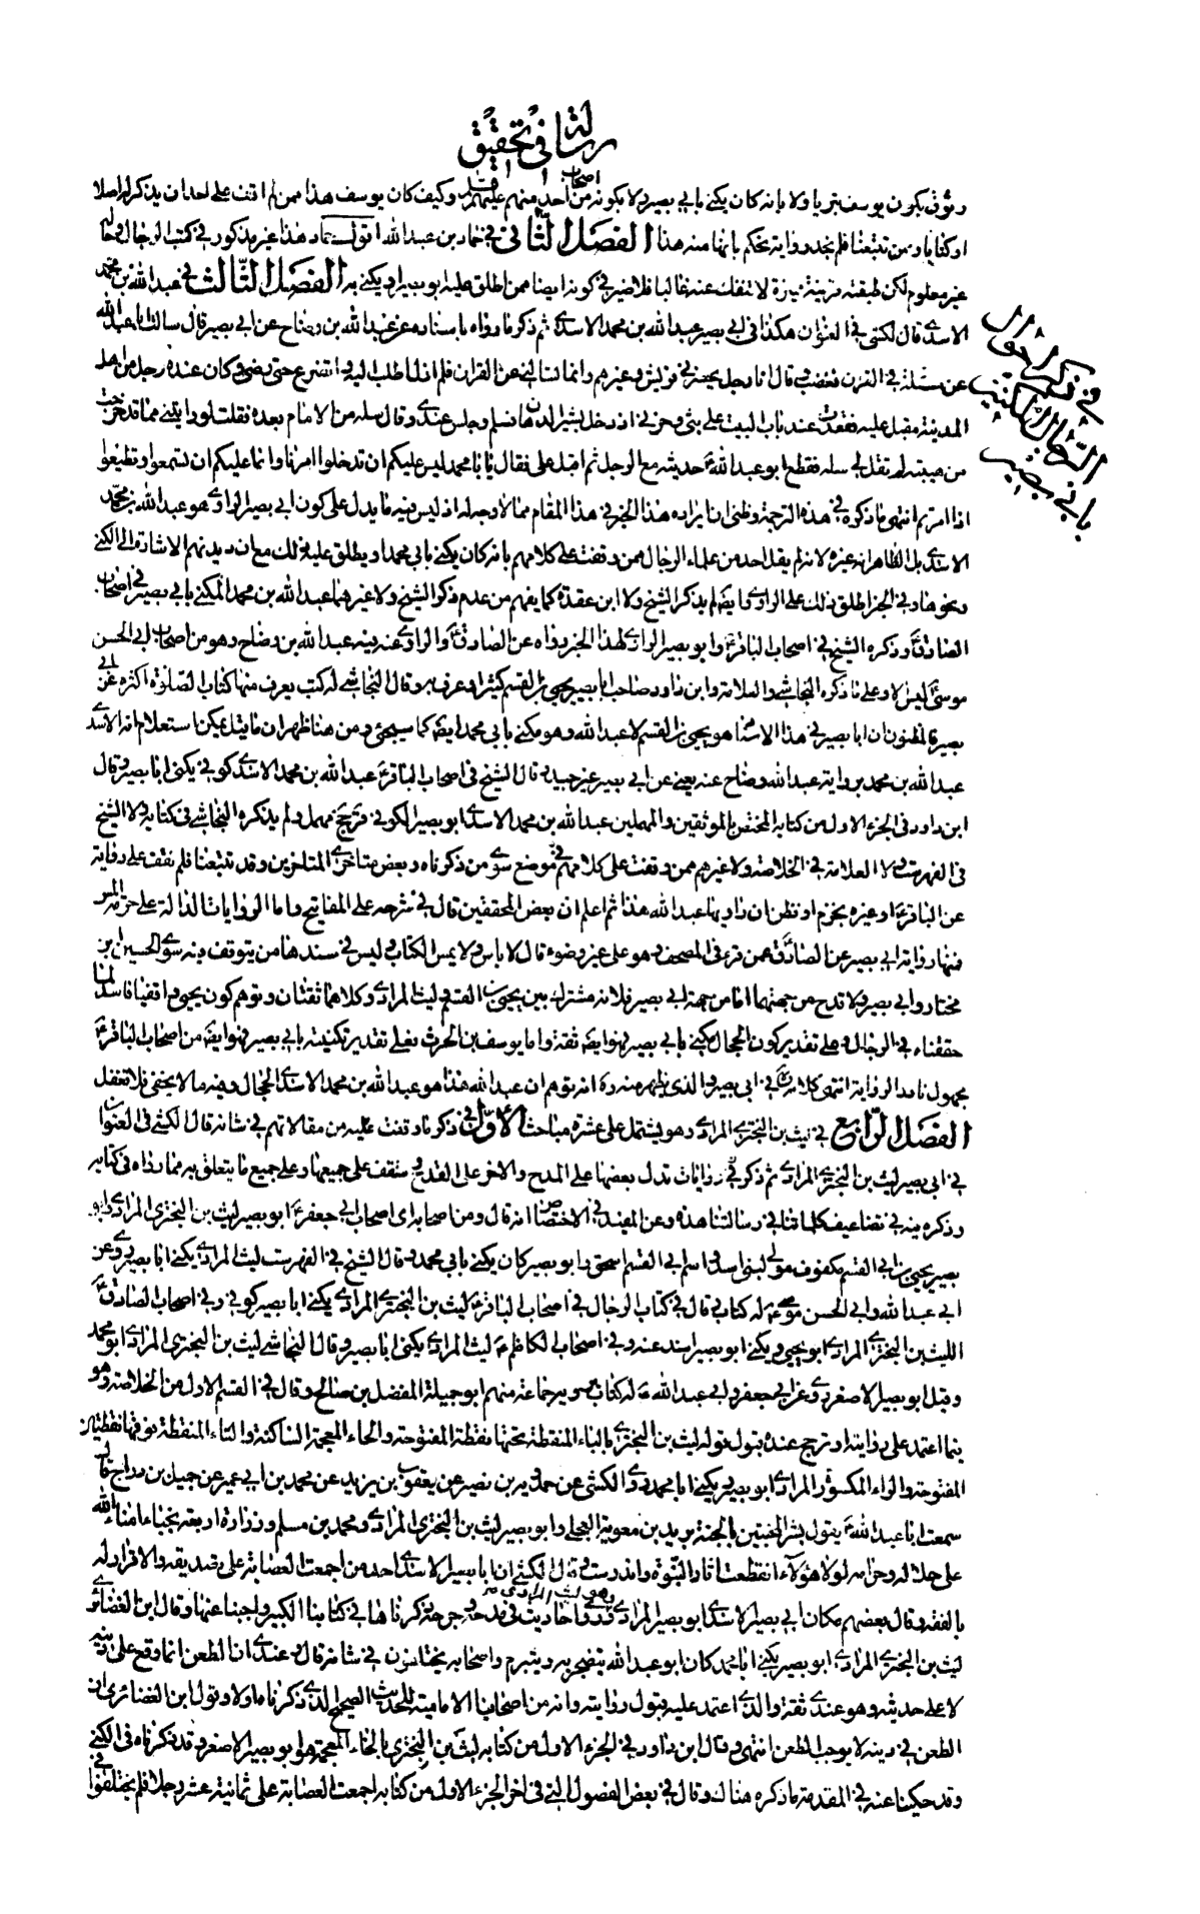 رسالة في تحقيق
وثوق بكون يوسف بتريا ولا بانه كان يكنى بابي بصير ولا بكونه من اصحاب احد منهم عليهم السلام وكيف كان يوسف هذا ممن لم اقف على احد ان يذكر له اصلا
او كتابا ومن تتبعنا فلم نجد رواية نحكم بانها منه هذا الفصل الثاني في حماد بن عبدالله اقول حماد هذا غير مذكور في كتب الرجال وحاله
غير معلوم لكن طبقته قرينة مميزة لا تنفك عنه غالبا فلا ضير في كونه ايضا ممن اطلق عليه ابو بصير او يكنى به الفصل الثالث في عبدالله بن محمد
الاسدي قال الكشي في العنوان هكذا في ابي بصير عبدالله بن محمد الاسدي ثم ذكر ما رواه باسناده عن عبدالله بن وضاح عن ابي بصير قال سالت ابا عبدالله
عن مسئلة في القرآن فغضب وقال انا رجل يحضرني قريش وغيرهم وانما تسالني عن القران فلم ازل اطلب اليه واتضرع حتى رضي وكان عنده رجل من اهل
المدينة مقبل عليه فقعدت عند باب البيت على بثي وحزني اذ دخل بشير الدهان فسلم وجلس عندي وقال سله من الامام بعده فقلت لو رايتني مما قد خرجت
من هيبته لم تقل لي سله فقطع ابو عبدالله ع حديثه مع الرجل ثم اقبل علي فقال يا ابا محمد ليس عليكم ان تدخلوا امرنا وانما عليكم ان تسمعوا وتطيعوا
اذا امرتم انتهى ما ذكره في هذه الترجمة وظني ان ايراده هذا الخبر في هذا المقام مما لا وجه له اذ ليس فيه ما يدل على كون ابي بصير الراوي هو عبدالله بن محمد
الاسدي بل الظاهر انه غيره لانه لم يقل احد من علماء الرجال ممن وقفت على كلامهم بانه كان يكنى بابي محمد او يطلق عليه ذلك مع ان ديدنهم الاشارة الى الكنى
ونحوها وفي الخبر اطلق ذلك على الراوي وايضا لم يذكر الشيخ ولا ابن عقدة كما يفهم من عدم ذكر الشيخ ولا غيرهما عبدالله بن محمد المكنى بابي بصير في اصحاب
الصادق ع وذكره الشيخ في اصحاب الباقر ع وابو بصير الراوي لهذا الخبر رواه عن الصادق ع والراوي عنه فيه عبدالله بن وضاح وهو من اصحاب ابي الحسن
موسى ع ليس الا وعلى ما ذكره النجاشي والعلامة وابن داود صاحب ابا بصير يحيى بن القسم كثيرا وعرف به وقال النجاشي له كتب يعرف منها كتاب الصلوة اكثره عن ابي
بصير فالمظنون ان ابا بصير في هذا الاسناد هو يحيى بن القسم لا عبدالله وهو مكنى بابي محمد ايضا كما سيجئ ومن هنا ظهر ان ما قيل يمكن استعلام انه الاسدي
عبدالله بن محمد برواية عبدالله وضاح عنه يعني عن ابي بصير غير جيد قال الشيخ في اصحاب الباقر ع عبدالله بن محمد الاسدي كوفي يكنى ابا بصير وقال
ابن داود في الجزء الاول من كتابه المختص بالموثقين والمهملين عبدالله بن محمد الاسدي ابو بصير الكوفي قر جخ مهمل ولم يذكره النجاشي في كتابه ولا الشيخ
في الفهرست ولا العلامة في الخلاصة ولا غيرهم ممن وقفت على كلامهم في موضع سوى من ذكرناه وبعض متاخري المتاخرين وقد تتبعنا فلم نقف على رواية
عن الباقر ع او غيره نجزم او نظن ان راويها عبدالله هذا ثم اعلم ان بعض المحققين قال في شرحه على المفاتيح واما الروايات الدالة على حرمة المس
فمنها رواية ابي بصير عن الصادق ع عمن قرء في المصحف وهو على غير وضوء قال لا باس ولا يمس الكتاب وليس في سندها من يتوقف فيه سوى الحسين بن
مختار وابي بصير ولا قدح من جهتهما اما من جهة ابي بصير فلانه مشترك بين يحيى بن القسم وليث المرادي وكلاهما ثقتان وتوهم كون يحيى واقفيا فاسد لما
حققناه في الرجال وعلى تقدير كون الحجال مكنى بابي بصير فهو ايضا ثقة واما يوسف بن الحرث فعلى تقدير تكنيته بابي بصير فهو ايضا من اصحاب الباقر ع
مجهول نادر الرواية انتهى كلامه في ابي بصير والذي يظهر منه ره انه توهم ان عبدالله هذا هو عبدالله بن محمد الاسدي الحجال وفيه ما لا يخفى فلا تغفل
الفصل الرابع في ليث بن البختري المرادي وهو يشتمل على عشرة مباحث الاول في ذكر ما وقفت عليه من مقالاتهم في شانه قال الكشي في العنوان
في ابي بصير ليث بن البختري المرادي ثم ذكر فيه روايات تدل بعضها على المدح والاخر على القدح وستقف على جميعها وعلى جميع ما يتعلق به مما رواه في كتابه
وذكره فيه في تضاعيف كلماتنا في رسالتنا هذه وعن المفيد في الاختصاص انه قال ومن اصحابه اي اصحاب ابي جعفر ع ابو بصير ليث بن البختري المرادي وابو
بصير يحيى بن ابي القسم مكفوف مولى لبني اسد واسم ابي القسم اسحق وابو بصير كان يكنى بابي محمد وقال الشيخ في الفهرست ليث المرادي يكنى ابا بصير روى عن
ابي عبدالله وابي الحسن موسى ع له كتاب وقال في كتاب الرجال في اصحاب الباقر ع ليث بن البختري المرادي يكنى ابا بصير كوفي وفي اصحاب الصادق ع
الليث بن البختري المرادي ابو يحيى ويكنى ابو بصير اسند عنه وفي اصحاب الكاظم ع ليث المرادي يكنى ابا بصير وقال النجاشي ليث بن البختري المرادي ابو محمد
وقيل ابو بصير الاصغر روى عن ابي جعفر وابي عبدالله ع له كتاب يرويه جماعة منهم ابو جميلة المفضل بن صالح وقال في القسم الاول من الخلاصة وهو
فيما اعتمد على روايته او ترجح عنده قبول قوله ليث بن البختري بالباء المنقطة تحتها نقطة المفتوحة والخاء المعجمة الساكنة والتاء المنقطة فوقها نقطتان
المفتوحة والراء المكسورة المرادي ابو بصير ويكنى ابا محمد روى الكشي عن حمدويه بن نصير عن يعقوب بن يزيد عن محمد بن ابي عمير عن جميل بن دراج قال
سمعت ابا عبدالله ع يقول بشر المخبتين بالجنة بريد بن معوية العجلي وابو بصير ليث بن البختري المرادي ومحمد بن مسلم وزرارة اربعة نجباء امناء الله
على حلاله وحرامه لولا هؤلاء انقطعت اثار النبوة واندرست وقال الكشي ان ابا بصير الاسدي احد من اجمعت العصابة على تصديقه والاقرار له
بالفقه وقال بعضهم مكان ابي بصير الاسدي ابو بصير المرادي وهو ليث المرادي وروى احاديث في مدحه وجرحه ذكرناها في كتابنا الكبير واجبنا عنها وقال ابن الغضائري
ليث بن البختري المرادي ابو بصير يكنى ابا محمد كان ابو عبدالله يتضجر به ويتبرم واصحابه يختلفون في شانه قال وعندي ان الطعن انما وقع على دينه
لا على حديثه وهو عندي ثقة والذي اعتمد عليه قبول روايته وانه من اصحابنا الامامية للحديث الصحيح الذي ذكرناه اولا وقول ابن الغضائري ان
الطعن في دينه لا يوجب الطعن انتهى وقال ابن داود في الجزء الاول من كتابه ليث بن البختري بالخاء المعجمة هو ابو بصير الاصغر وقد ذكرناه في الكنى
وقد حكينا عنه في المقدمة ما ذكره هناك وقال في بعض الفصول التي في اخر الجزء الاول من كتابه اجمعت العصابة على ثمانية عشر رجلا فلم يختلفوا في
في ذكر احوال
الرجال المكنين
بابي بصير